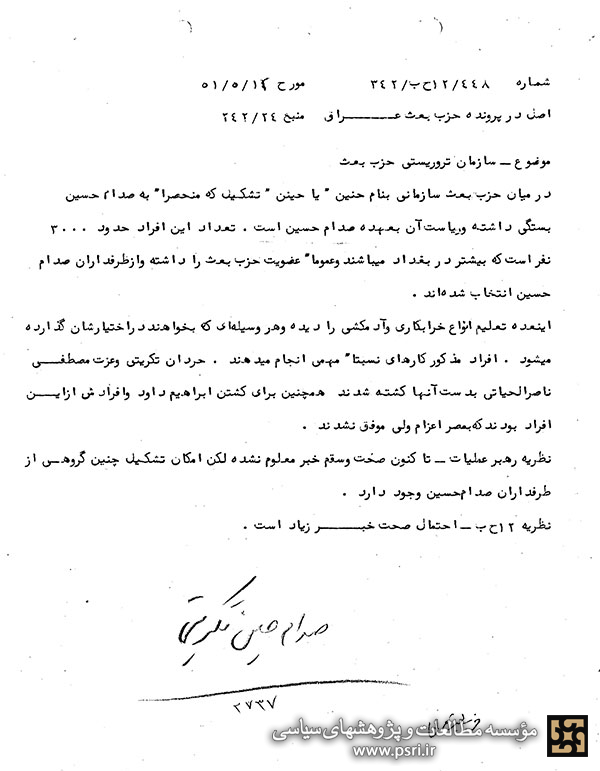 شماره ۱۲/۴۴۸ح‌ب/۳۴۲ مورخ ۵۱/۵/۱۴
اصل در پرونده حزب بعث عــــراق منبع ۲۴۲/۲۴
موضوع ــ سازمان تروریستی حزب بعث
در میان حزب بعث سازمانی بنام حنین " یا حینن " تشکیل که منحصرا" به صدام حسین
بستگی داشته وریاست آن بعهده صدام حسین است . تعداد این افراد حدود ۳۰۰۰
نفر است که بیشتر در بغداد میباشند وعموما" عضویت حزب بعث را داشته وازطرفداران صدام
حسین انتخاب شده‌اند .
اینعده تعلیم انواع خرابکاری وآدمکشی را دیده وهر وسیله‌ای که بخواهند دراختیارشان گذارده
میشود . افراد مذکور کارهای نسبتا" مهمی انجام میدهند . حردان تکریتی وعزت مصطفـــی
ناصرالحیاتی بدست آنها کشته شدند همچنین برای کشتن ابراهیم داود وافرادش ازایـــن
افراد بودند که بمصر اعزام ولی موفق نشدند .
نظریه رهبر عملیات ــ تا کنون صحت وسقم خبر معلوم نشده لکن امکان تشکیل چنین گروهی از
طرفداران صدام‌حسین وجود دارد .
نظریه ۱۲ح‌ب ــ احتمال صحت خبــــر زیاد است .
صدام حسین تکریتی
۲۷۳۷
مؤسسه مطالعات و پژوهشهای سیاسی
www.psri.ir